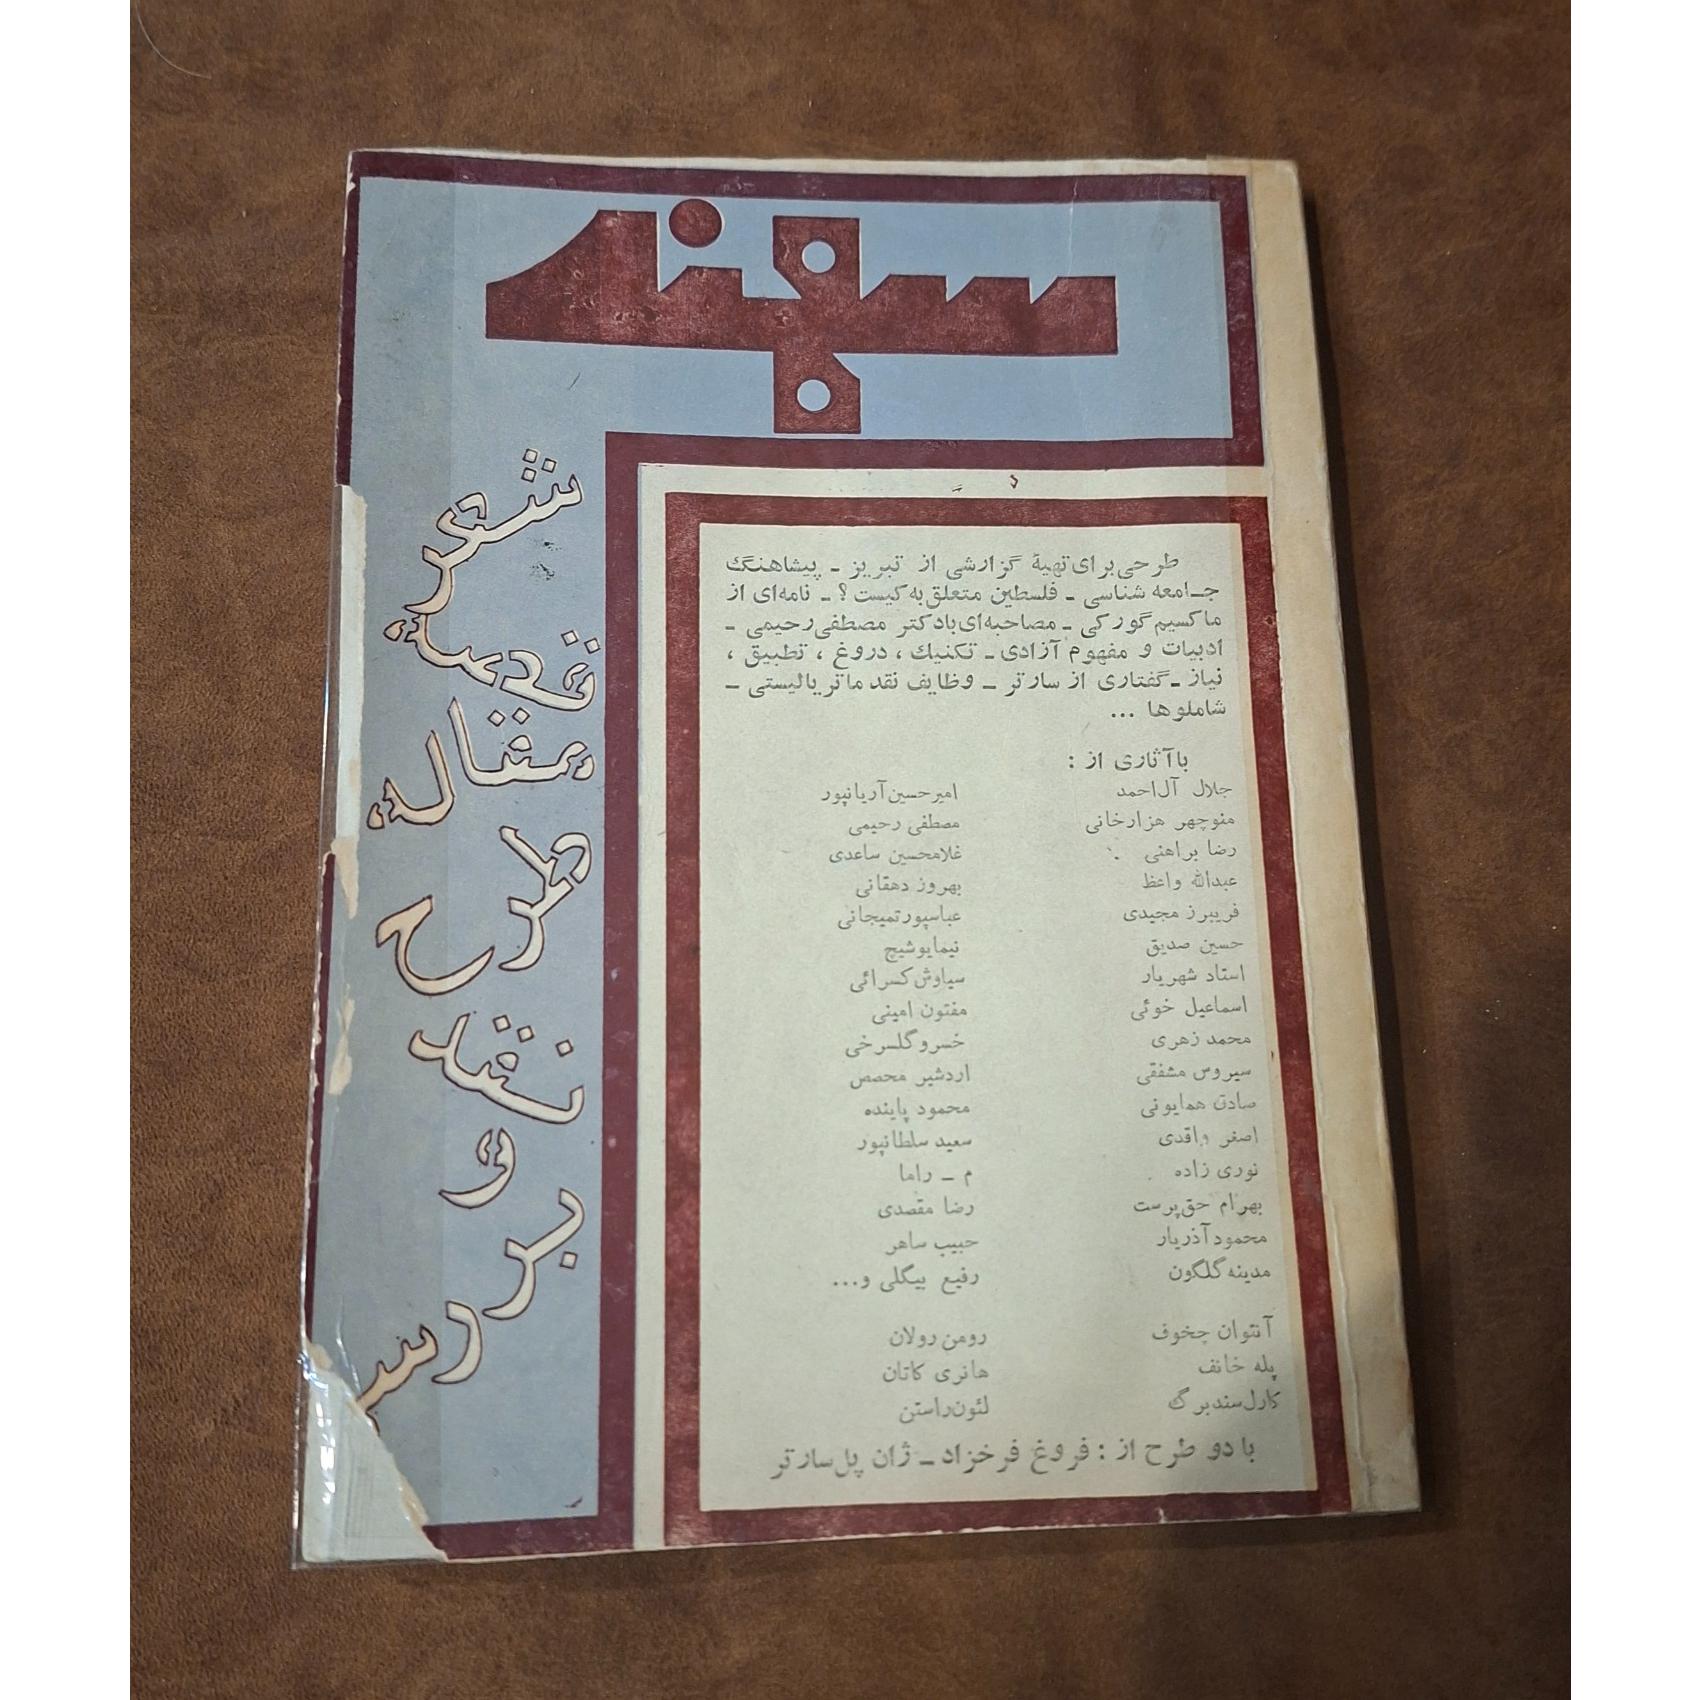 سهند
شعر
قصه
مقاله
طرح
نقد
و
بررس
طرحی برای تهیهٔ گزارشی از تبریز ـ پیشاهنگ
جـامعه شناسی ـ فلسطین متعلق به کیست؟ ـ نامه‌ای از
ماکسیم گورکی ـ مصاحبه‌ای با دکتر مصطفی رحیمی ـ
ادبیات و مفهوم آزادی ـ تکنیک، دروغ، تطبیق،
نیاز ـ گفتاری از سارتر ـ وظایف نقد ماتریالیستی ـ
شاملوها ...
با آثاری از:
جلال آل‌احمد امیرحسین آریانپور
منوچهر هزارخانی مصطفی رحیمی
رضا براهنی غلامحسین ساعدی
عبدالله واعظ بهروز دهقانی
فریبرز مجیدی عباسپور تمیجانی
حسین صدیق نیمایوشیج
استاد شهریار سیاوش کسرائی
اسماعیل خوئی مفتون امینی
محمد زهری خسرو گلسرخی
سیروس مشفقی اردشیر محصص
صادق همایونی محمود پاینده
اصغر واقدی سعید سلطانپور
نوری زاده م ـ راما
بهرام حق‌پرست رضا مقصدی
محمود آذریار حبیب ساهر
مدینه گلگون رفیع بیگلی و...
آنتوان چخوف رومن رولان
پله خانف هانری کاتان
کارل سندبرگ لئون راستن
با دو طرح از: فروغ فرخزاد ـ ژان پل سارتر